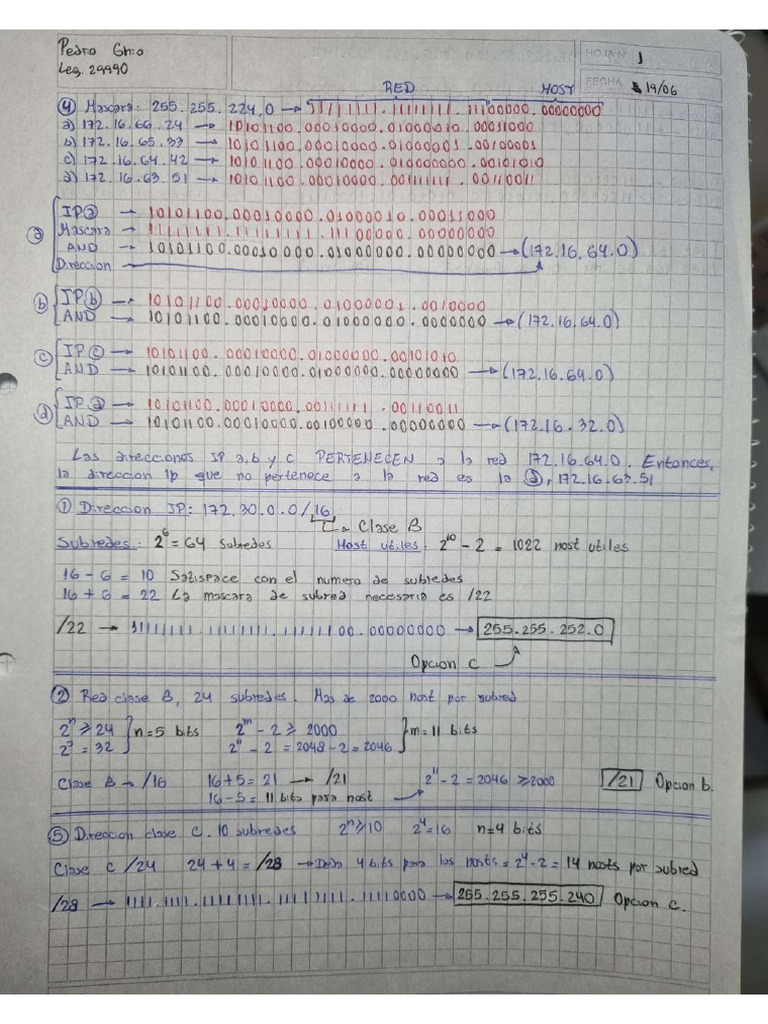 Pedro Ghio
Leg. 29990
HOJA Nº 1
FECHA 19/06
RED HOST
④ Mascara: 255.255.224.0 → 11111111.11111111.11100000.00000000
a) 172.16.66.24 → 10101100.00010000.01000010.00011000
b) 172.16.65.33 → 10101100.00010000.01000001.00100001
c) 172.16.64.42 → 10101100.00010000.01000000.00101010
d) 172.16.63.51 → 10101100.00010000.00111111.00110011
ⓐ IPⓐ → 10101100.00010000.01000010.00011000
Mascara → 11111111.11111111.11100000.00000000
AND → 10101100.00010000.01000000.00000000 → (172.16.64.0)
Direccion
ⓑ IPⓑ → 10101100.00010000.01000001.0010000
AND → 10101100.00010000.01000000.0000000 → (172.16.64.0)
ⓒ IPⓒ → 10101100.00010000.01000000.00101010
AND → 10101100.00010000.01000000.00000000 → (172.16.64.0)
ⓓ IPⓓ → 10101100.00010000.00111111.00110011
AND → 10101100.00010000.00100000.00000000 → (172.16.32.0)
Las direcciones IP a, b y c PERTENECEN a la red 172.16.64.0. Entonces,
la direccion ip que no pertenece a la red es la ⓓ, 172.16.63.51
① Direccion IP: 172.30.0.0/16
→ Clase B
Subredes: 2⁶ = 64 subredes Host utiles: 2¹⁰ - 2 = 1022 host utiles
16 - 6 = 10 Satisface con el numero de subredes
16 + 6 = 22 La mascara de subred necesaria es /22
/22 → 11111111.11111111.11111100.00000000 → 255.255.252.0
Opcion c
② Red clase B, 24 subredes. Mas de 2000 host por subred
2ⁿ ≥ 24 } n = 5 bits 2ᵐ - 2 ≥ 2000 } m = 11 bits
2⁵ = 32 2¹¹ - 2 = 2048 - 2 = 2046
Clase B → /16 16+5 = 21 → /21 2¹¹ - 2 = 2046 ≥ 2000 /21 Opcion b.
16 - 5 = 11 bits para host
⑤ Direccion clase C. 10 subredes 2ⁿ ≥ 10 2⁴ = 16 n = 4 bits
Clase C /24 24 + 4 = /28 → Deja 4 bits para los hosts = 2⁴ - 2 = 14 hosts por subred
/28 → 11111111.11111111.11111111.11110000 → 255.255.255.240 Opcion c.